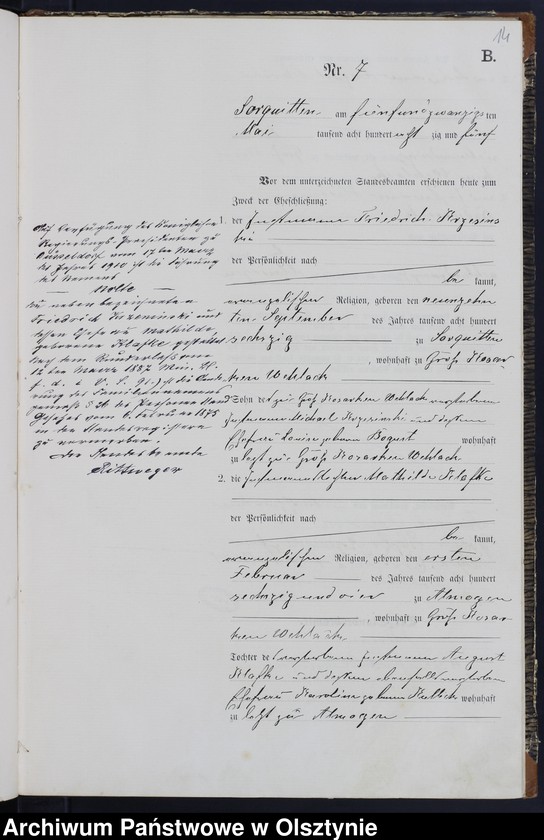 14
B.
Nr. 7
Sorquitten am fünfundzwanzigsten
Mai tausend acht hundert achtzig und fünf
Vor dem unterzeichneten Standesbeamten erschienen heute zum
Zweck der Eheschließung:
1. der Instmann Friedrich Krzesins
ki
der Persönlichkeit nach
be kannt,
evangelischer Religion, geboren den neunzehn
ten September des Jahres tausend acht hundert
sechzig zu Sorquitten
, wohnhaft zu Groß Kosar
ken Wehlack
Sohn des zu Groß Kosarken Wehlack verstorbenen
Instmann Michael Krzesinski und dessen
Ehefrau Louise geborne Bogust wohnhaft
zu letzt zu Groß Kosarken Wehlack
2. die Instmannstochter Mathilde Klafke
der Persönlichkeit nach
be kannt,
evangelischer Religion, geboren den ersten
Februar des Jahres tausend acht hundert
sechzig und vier zu Almoyen
, wohnhaft zu Groß Kosar
ken Wehlack
Tochter des verstorbenen Instmann August
Klafke und dessen ebenfalls verstorbenen
Ehefrau Karoline geborne wohnhaft
zu letzt zu Almoyen
Auf Verfügung des Königlichen
Regierungs-Praesidenten zu
Düsseldorf vom 17ten Maerz
des Jahres 1910 ist die Führung
des Namens
Nolte
zu neben bezeichneten
Friedrich Krzesinski und
dessen Ehefrau Mathilde
geborene Klafke gestattet
Nach dem Runderlass vom
12ten Maerz 1897 Min. Bl.
f. d. i. V. S. ist die Aende
rung des Familiennamens
gemäß § 26 des Personen Stand
Gesetzes vom 6. Februar 1875
in den Standesregistern
zu vermerken.
Der Standesbeamte
Rittweger
Archiwum Państwowe w Olsztynie